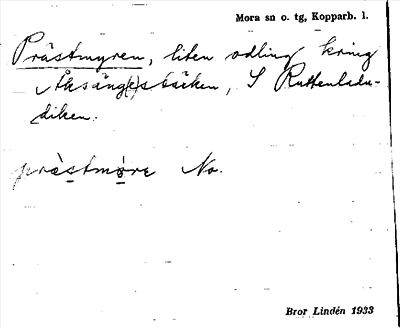 Mora sn o. tg, Kopparb. l.
Prästmyren, liten odling kring
bäcken, S Ruttenladu-
diken.
prèstmỳre No.
Bror Lindén 1933